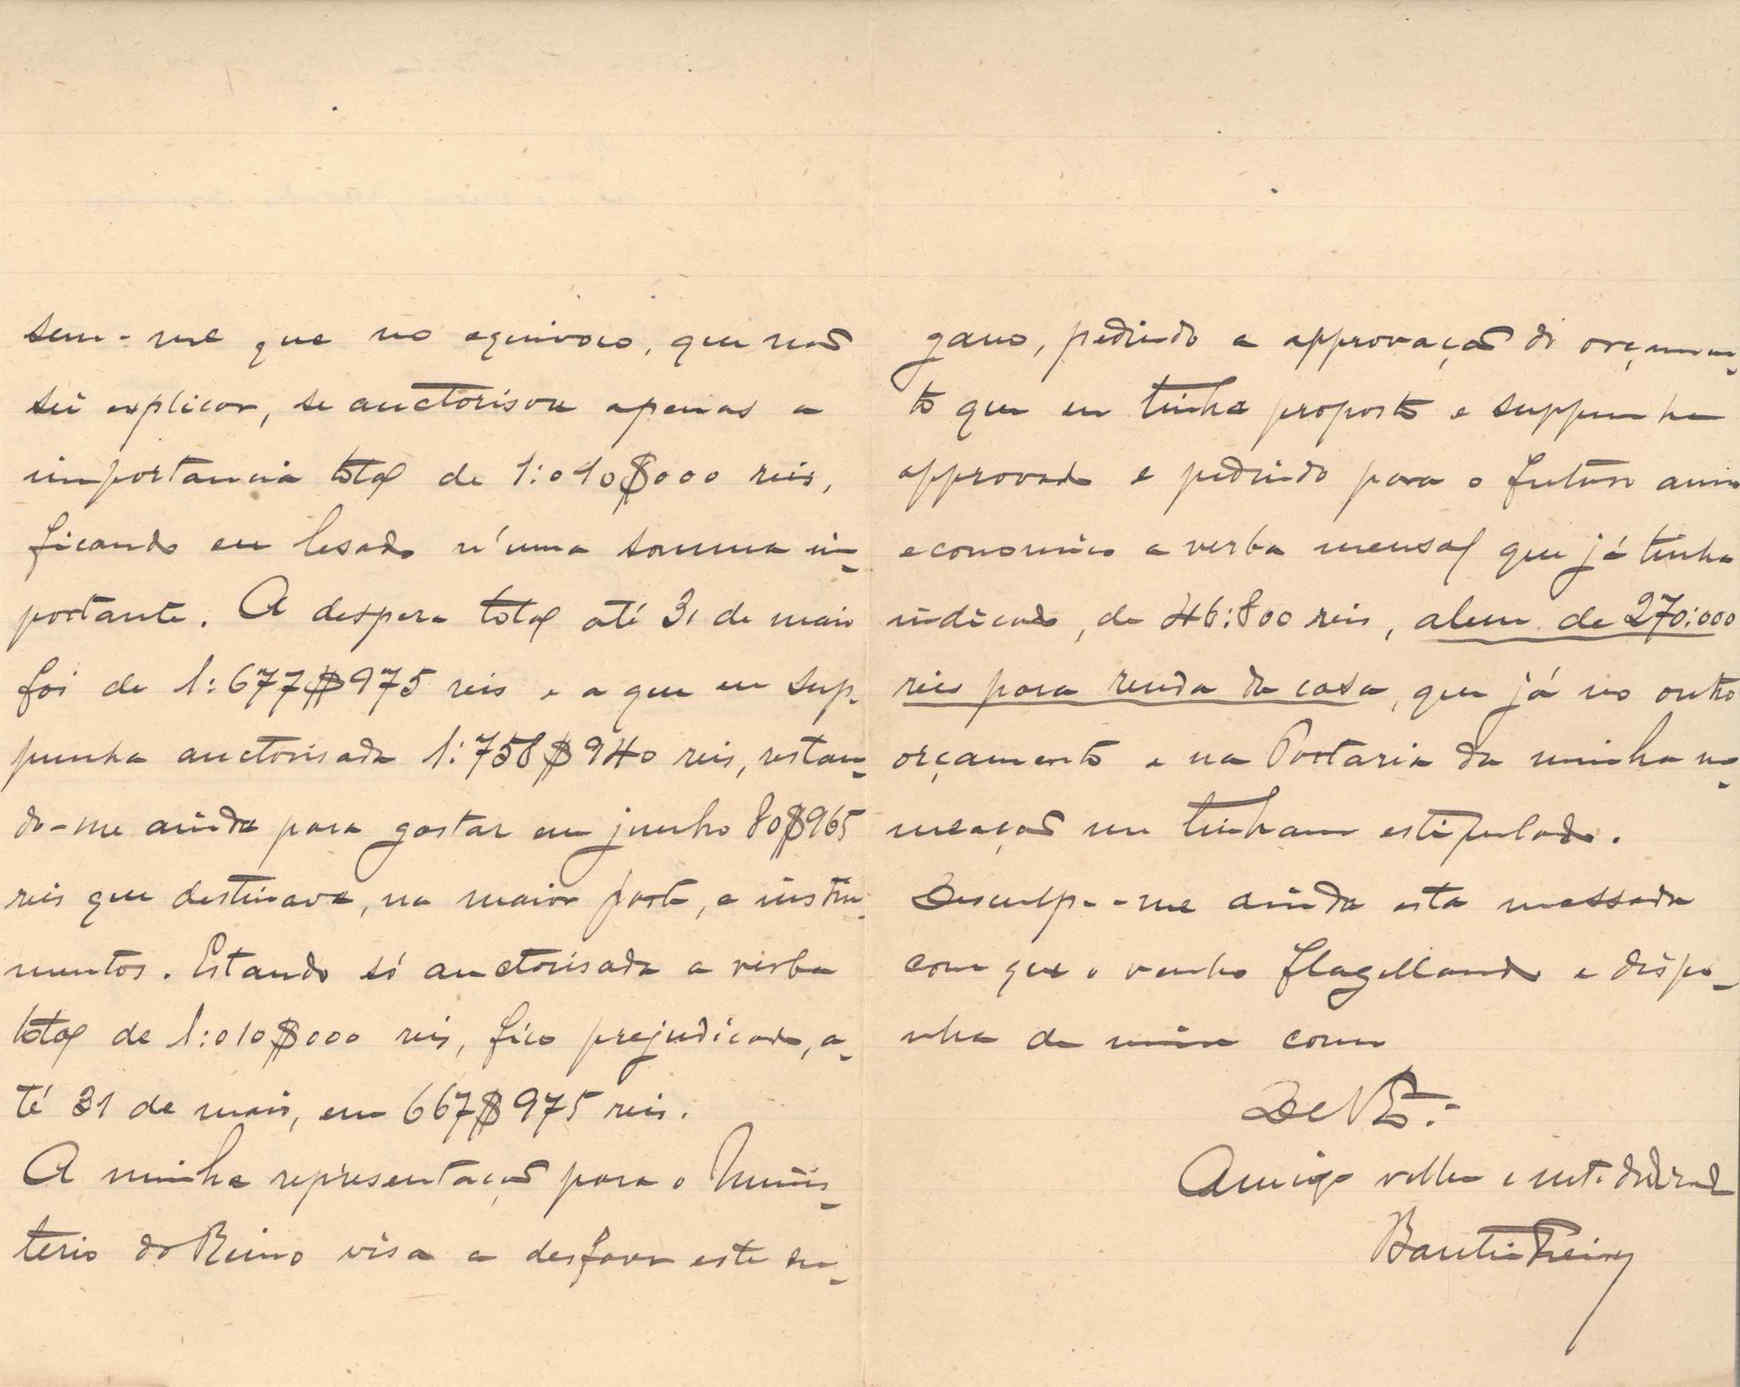 sem-me que no equivoco, que não
sei explicar, se auctorisou apenas a
importancia total de 1:010$000 reis,
ficando eu lesado n'uma somma im-
portante. A despesa total até 31 de maio
foi de 1:677$975 reis e a que eu sup-
punha auctorisada 1:758$940 reis, restan-
do-me ainda para gastar em junho 80$965
reis que destinava, na maior parte, a instru-
mentos. Estando só auctorisada a verba
total de 1:010$000 reis, fico prejudicado, a-
té 31 de maio, em 667$975 reis.
A minha representação para o Minis-
terio do Reino visa a desfazer este en-
gano, pedindo a approvação do orçamen-
to que eu tinha proposto e suppunha
approvado e pedindo para o futuro anno
economico a verba mensal que já tinha
indicado, de 46:800 reis, alem de 270:000
reis para renda da casa, que já no outro
orçamento e na Portaria da minha no-
meação me tinham estipulado.
Desculpe-me ainda esta massada
com que o venho flagellando e dispo-
nha de mim como
De V. Ex.ª
Amigo velho e mt.